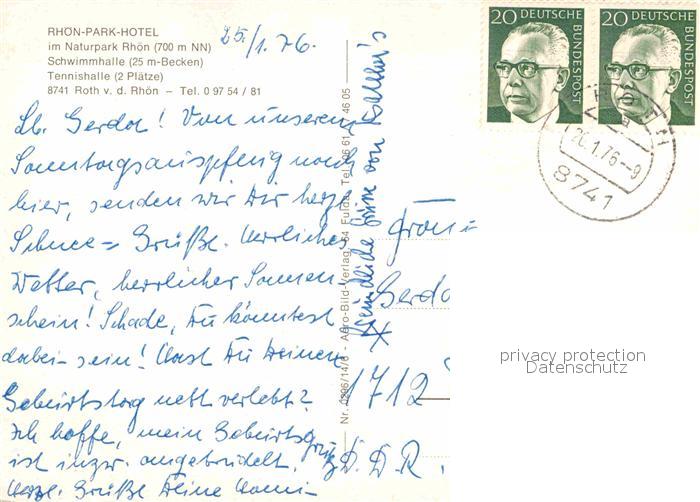 RHÖN-PARK-HOTEL
im Naturpark Rhön (700 m NN)
Schwimmhalle (25 m-Becken)
Tennishalle (2 Plätze)
8741 Roth v. d. Rhön – Tel. 0 97 54 / 81
25./1.76.
Lb. Gerda! Von unserem
Sonntagsausflug nach
hier, senden wir Dir herzl.
Schnee= Grüße. Herrliches
Wetter, herrlicher Sonnen-
schein! Schade, Du könntest
dabei-sein! Hast Du Deinen
Geburtstag nett verlebt?
Ich hoffe, mein Geburtsgruß
ist inzw. angetrudelt.
Herzl. Grüße Deine
Nr. 0296/14/6 - Aero-Bild-Verlag, 64 Fulda, Tel. 06 61 / 46 05
Freundliche Grüße von
20 DEUTSCHE BUNDESPOST
20 DEUTSCHE BUNDESPOST
26.1.76--9
8741
Frau
Gerda
1712
D.D.R.
privacy protection
Datenschutz